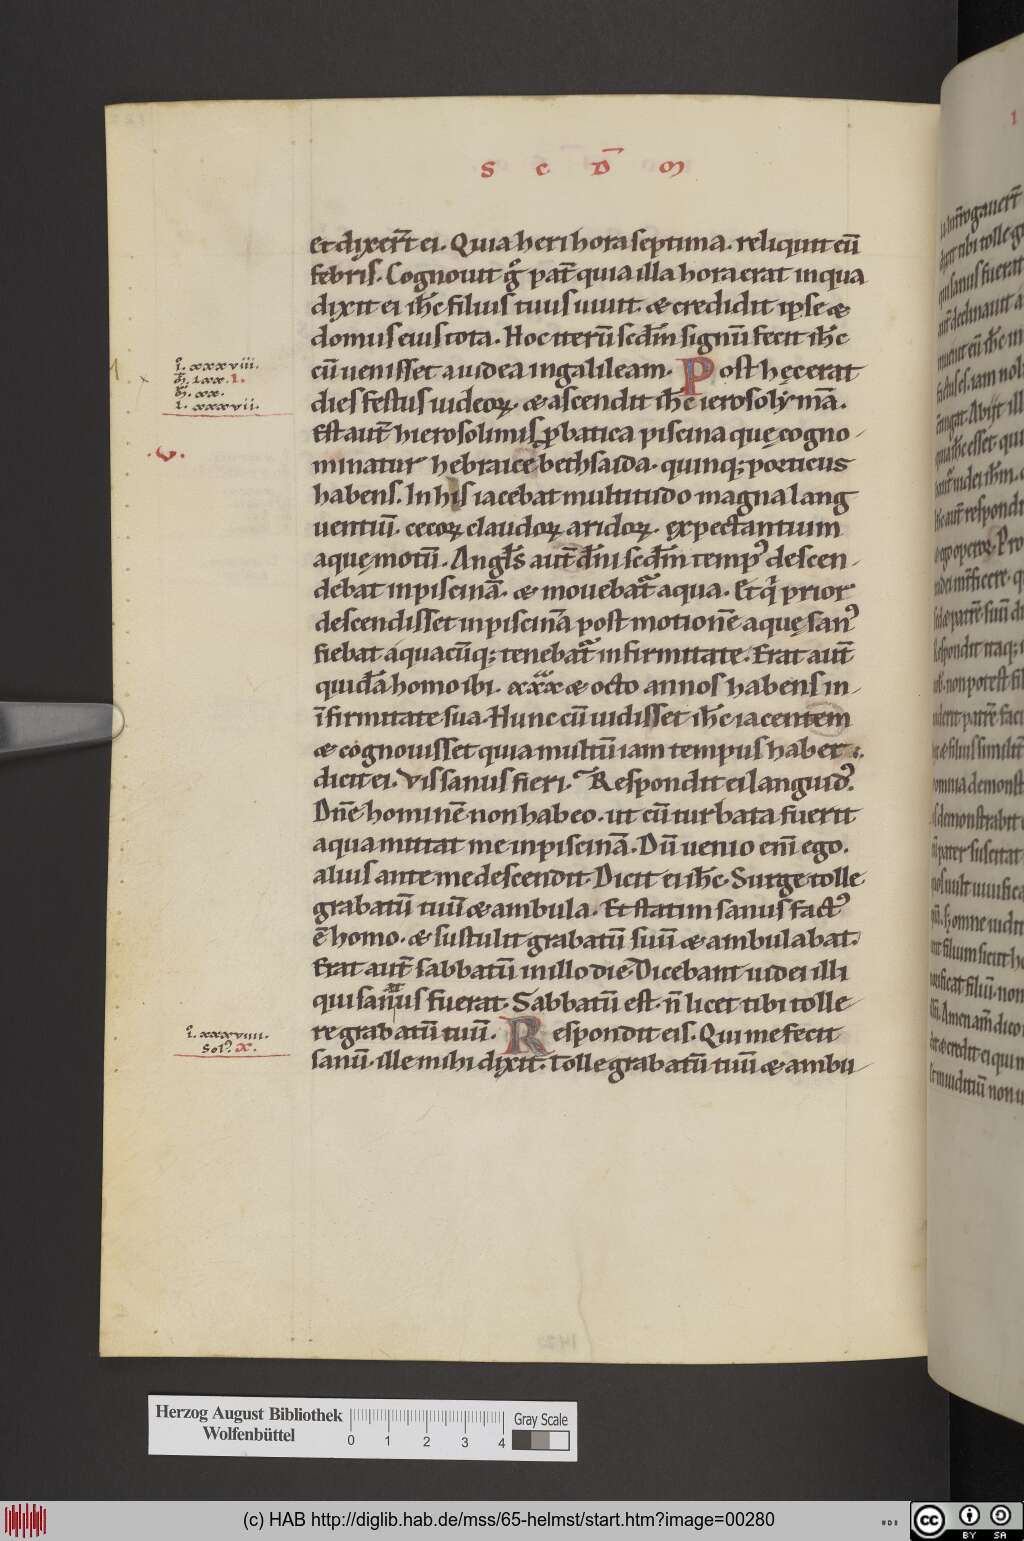 S C D̅ M
et dixer̅t ei. Quia heri hora septima. reliquit eū
febris. Cognouit g̊ pat̄ quia illa hora erat in qua
dixit ei ih̅c filius tuus uiuit. & credidit ipse &
domus eius tota. Hoc iterū scd̅m signū fecit ih̅c
cū uenisset a iudea in galileam. Post hęc erat
dies festus iudeoꝝ. & ascendit ih̅c ierosolymā.
Est aut̄ hierosolimis ꝓbatica piscina quę cogno-
minatur hebraice bethsaida. quinq; porticus
habens. In his iacebat multitudo magna lang
uentiū. cecoꝝ claudoꝝ aridoꝝ. expectantium
aquę motū. Angl̅s aut̄ dn̅i scd̅m temp᾽ descen-
debat in piscinā. & mouebat᷑ aqua. Et q̇ prior
descendisset in piscinā post motionē aquę san᾽
fiebat a quacūq; tenebat᷑ infirmitate. Erat aut̄
quidā homo ibi. xxx & octo annos habens in-
īfirmitate sua. Hunc cū uidisset ih̅c iacentem
& cognouisset quia multū iam tempus habet.
dicit ei. Vis sanus fieri. Respondit ei languid᾽.
Dn̅e hominē non habeo. ut cū turbata fuerit
aqua mittat me in piscinā. Dū uenio eni̅ ego.
alius ante me descendit. Dicit ei ih̅c. Surge tolle
grabatū tuū & ambula. Et statim sanus fact᾽
ē homo. & sustulit grabatū suū & ambulabat.
Erat aut̄ sabbatū in illo die. Dicebant iudei illi
qui sanus fuerat. Sabbatū est. n̄ licet tibi tolle-
re grabatū tuū. Respondit eis. Qui me fecit
sanū. ille mihi dixit. Tolle grabatū tuū & ambu-
i̊. xxxviii.
m̄. lxx. i.
m̄. xx.
l. xxxvii.
.V.
i̊. xxxviiii.
Sol᾽. x.
Herzog August Bibliothek
Wolfenbüttel
0 1 2 3 4
Gray Scale
(c) HAB http://diglib.hab.de/mss/65-helmst/start.htm?image=00280
cc BY SA